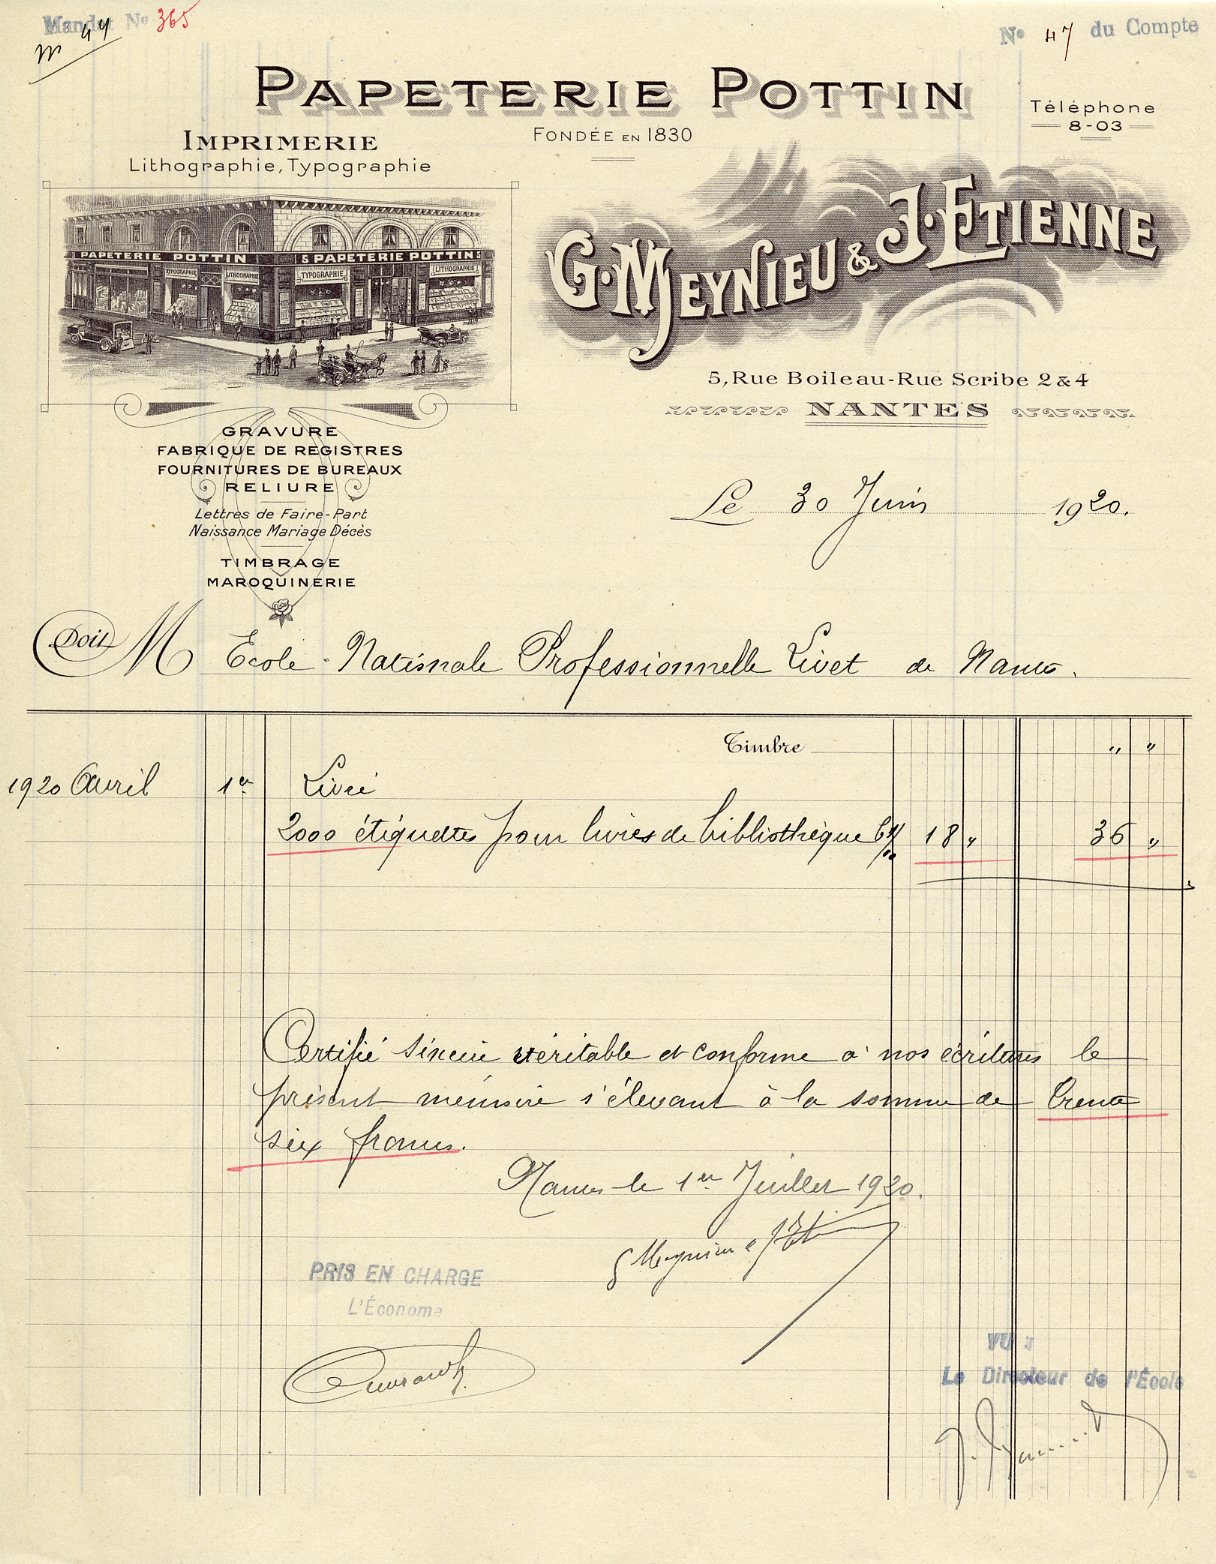 Mandat No 365
m 47
No 47 du Compte
PAPETERIE POTTIN
FONDÉE EN 1830
Téléphone
8-03
IMPRIMERIE
Lithographie, Typographie
PAPETERIE POTTIN
5 PAPETERIE POTTIN 5
TYPOGRAPHIE
LITHOGRAPHIE
TYPOGRAPHIE
LITHOGRAPHIE
G. MEYNIEU & J. ETIENNE
5, Rue Boileau-Rue Scribe 2 & 4
NANTES
GRAVURE
FABRIQUE DE REGISTRES
FOURNITURES DE BUREAUX
RELIURE
Lettres de Faire-Part
Naissance Mariage Décès
TIMBRAGE
MAROQUINERIE
Le 30 Juin 1920.
Doit M Ecole Nationale Professionnelle Livet de Nantes.
Timbre " "
1920 Avril 1er Livré
2000 étiquettes pour livres de bibliothèque 18 " 36 "
Certifié sincère véritable et conforme à nos écritures le
présent mémoire s'élevant à la somme de Trente
six francs.
Nantes le 1er Juillet 1920.
G Meynieu & J Etienne
PRIS EN CHARGE
L'Économe
VU :
Le Directeur de l'École